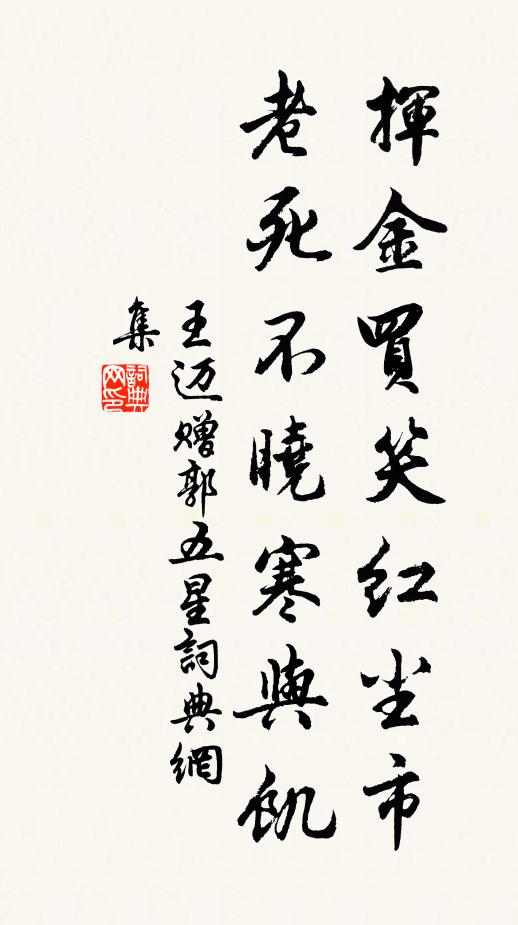 揮金買笑红尘市
老死不曉寒與飢
王迈贈郭五星詞典網
集
詞典
网印